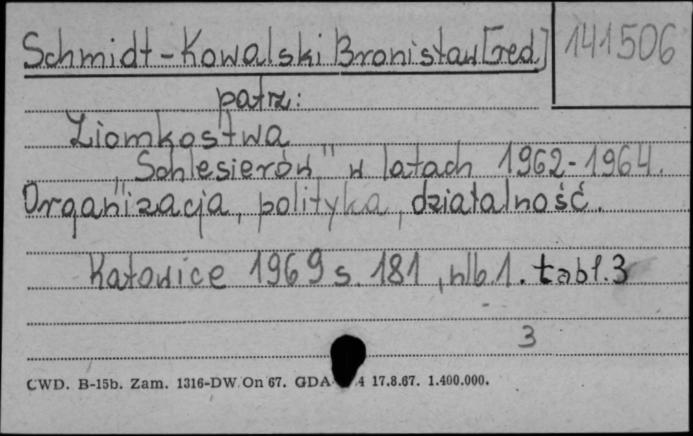 Schmidt-Kowalski Bronisław [red.]
141506
patrz:
Ziomkostwa
"Schlesierów" w latach 1962-1964.
Organizacja, polityka, działalność.
Katowice 1969 s. 181, nlb. 1. tabl. 3
3
CWD. B-15b. Zam. 1316-DW On 67. GDA 4 17.8.67. 1.400.000.